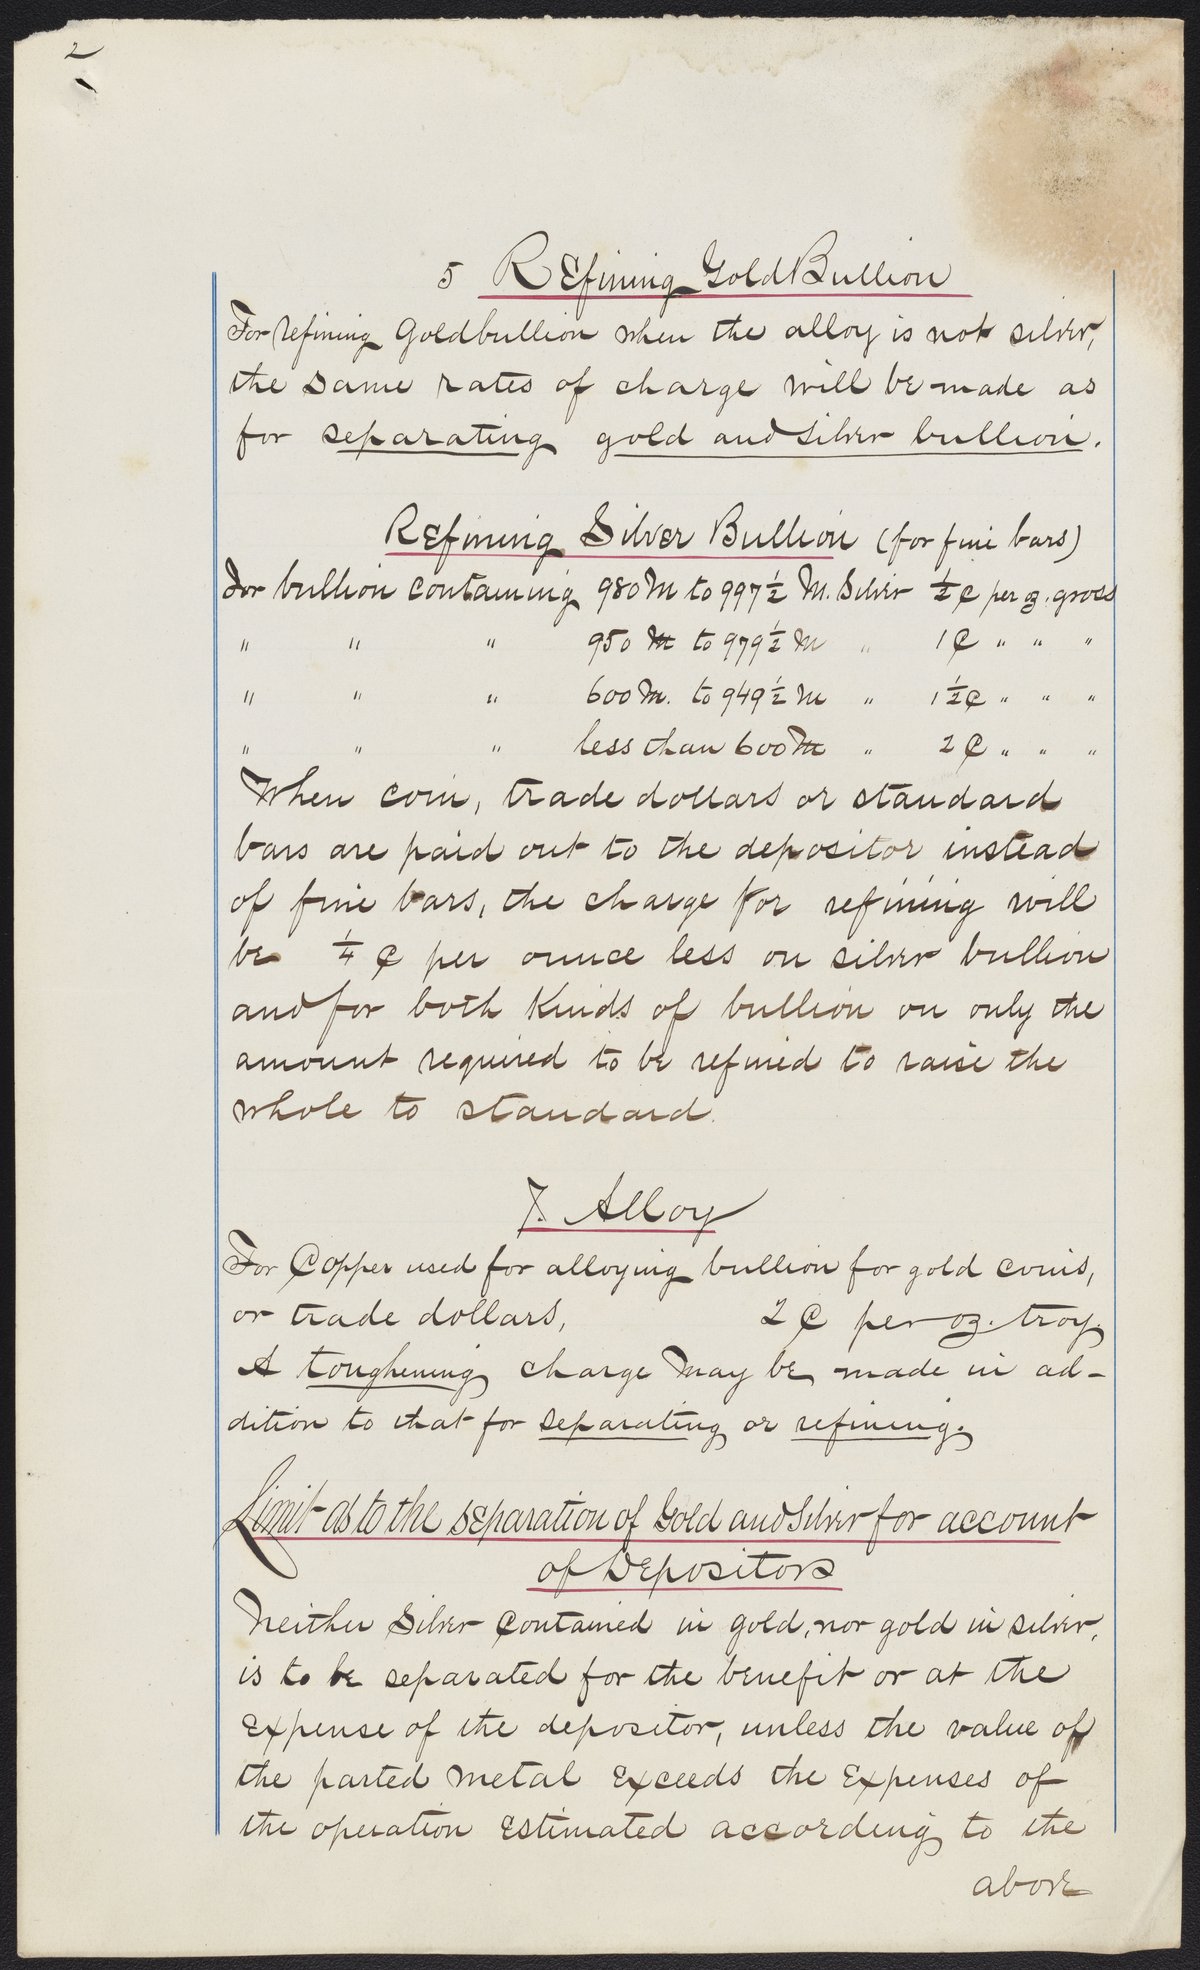 2
5 Refining Gold Bullion
For refining Gold bullion when the alloy is not silver,
the same rates of charge will be made as
for separating gold and silver bullion.
Refining Silver Bullion (for fine bars)
For bullion containing 980 M to 997 1/2 M. Silver 1/2 ¢ per oz. gross
" " " 950 M to 979 1/2 M " 1 ¢ " " "
" " " 600 M. to 949 1/2 M " 1 1/2 ¢ " " "
" " " less than 600 M " 2 ¢ " " "
When coin, trade dollars or standard
bars are paid out to the depositor instead
of fine bars, the charge for refining will
be 1/4 ¢ per ounce less on silver bullion
and for both kinds of bullion on only the
amount required to be refined to raise the
whole to standard.
7. Alloy
For Copper used for alloying bullion for gold coins,
or trade dollars, 2 ¢ per oz. troy.
A toughening charge may be made in ad-
dition to that for separating or refining.
Limit as to the separation of Gold and Silver for account
of Depositors
Neither Silver Contained in gold, nor gold in silver,
is to be separated for the benefit or at the
Expense of the depositor, unless the value of
the parted metal Exceeds the Expenses of
the operation Estimated according to the
above